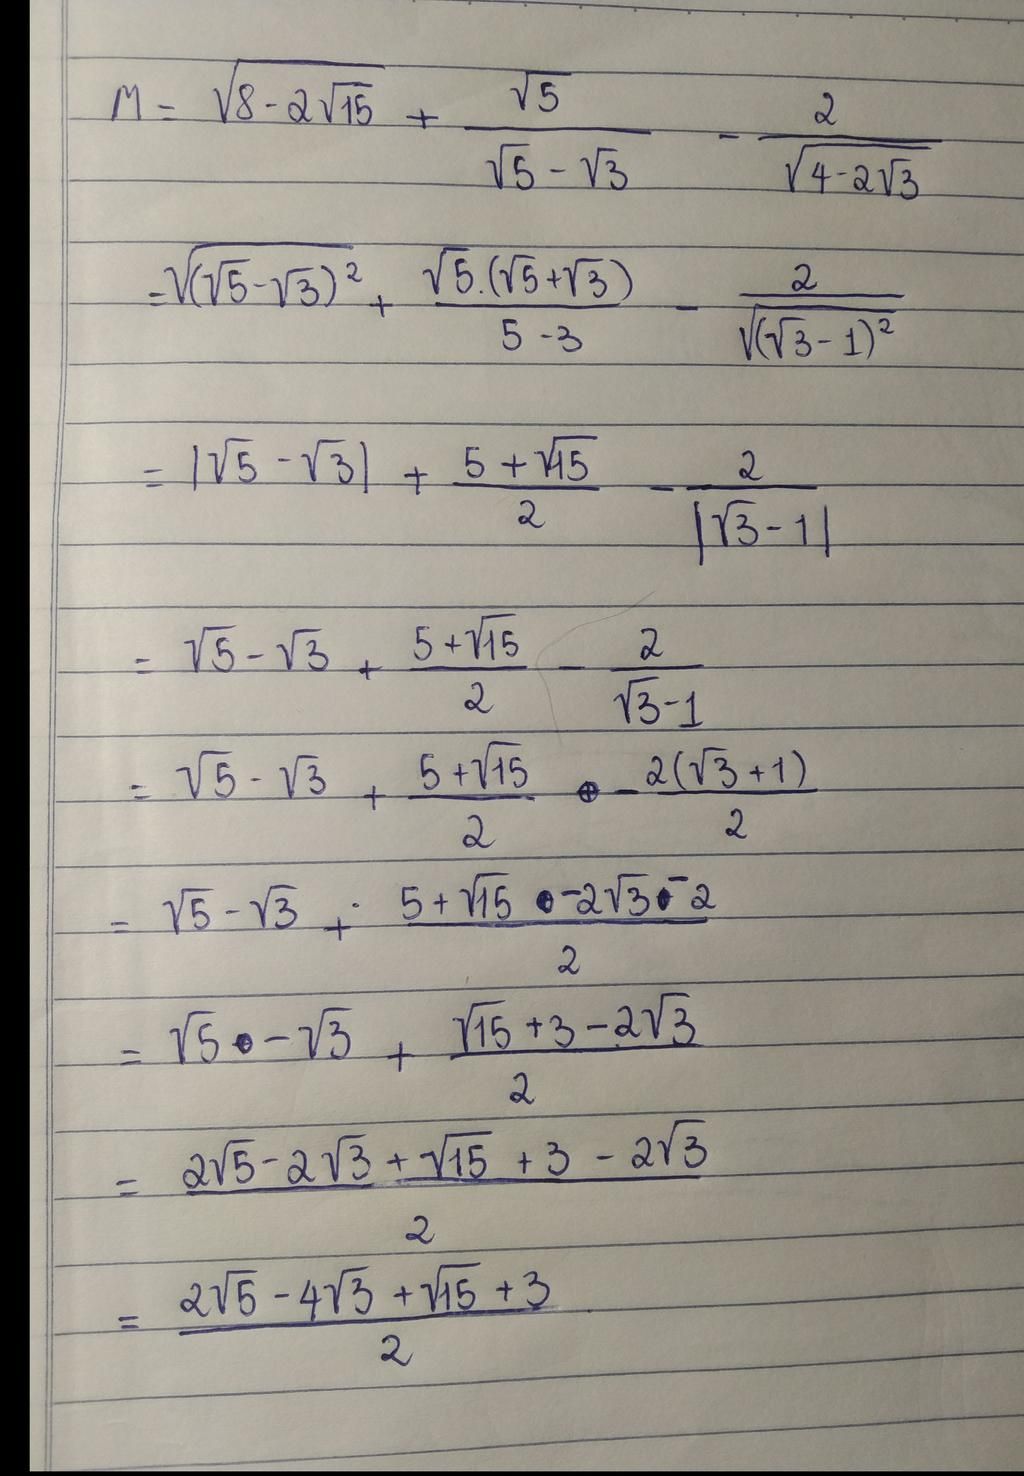 M = √(8-2√15) + √5/(√5-√3) - 2/√(4-2√3)
= √((√5-√3)²) + √5.(√5+√3)/(5-3) - 2/√((√3-1)²)
= |√5-√3| + (5+√15)/2 - 2/|√3-1|
= √5-√3 + (5+√15)/2 - 2/(√3-1)
= √5-√3 + (5+√15)/2 - 2(√3+1)/2
= √5-√3 + (5+√15-2√3-2)/2
= √5-√3 + (√15+3-2√3)/2
= (2√5-2√3+√15+3-2√3)/2
= (2√5-4√3+√15+3)/2